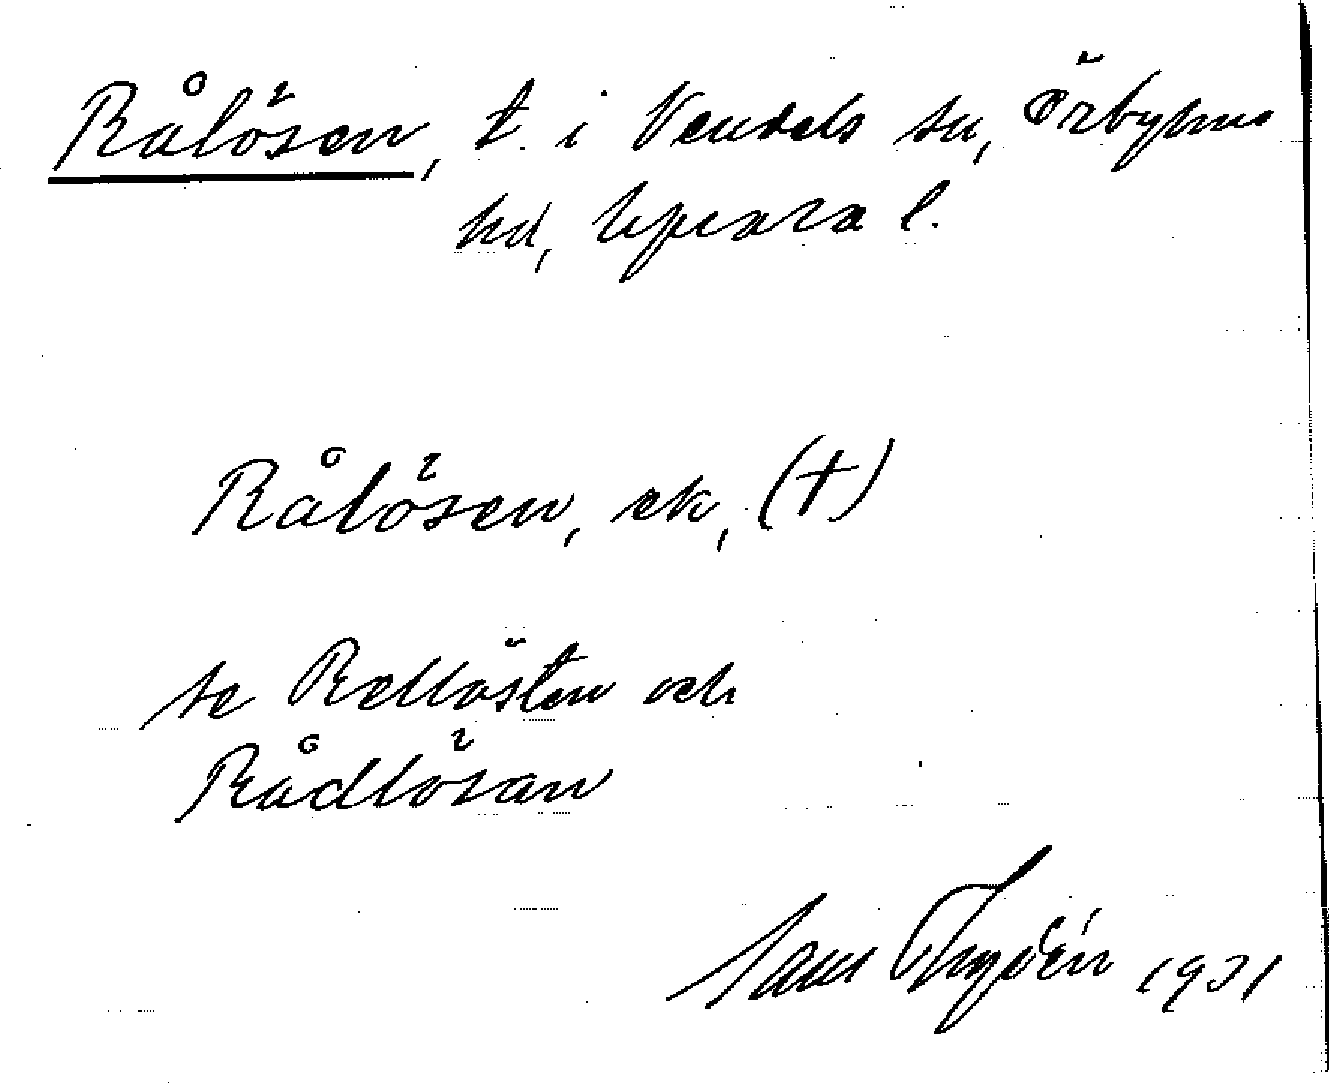 Rålösen, t. i Vendels sn, Örbyhus
hd, Uppsala l.
Rålösen, ek, (†)
se Rellösten och
Rådlösan
1931